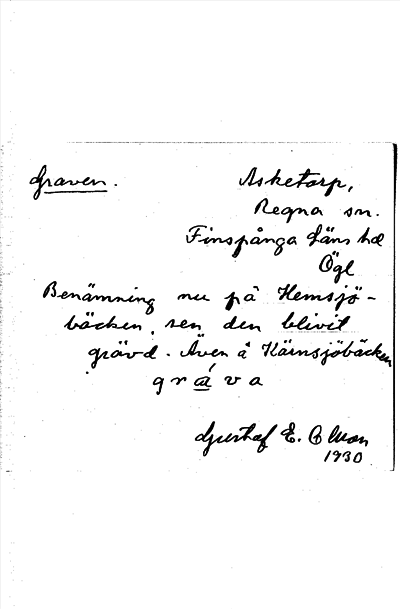 Graven. Asketorp,
Regna sn.
Finspånga läns hd
Ögl
Benämning nu på Hemsjö-
bäcken, sen den blivit
grävd. Även å Kärnsjöbäcken
gräva
Gustaf E. Olsson
1930